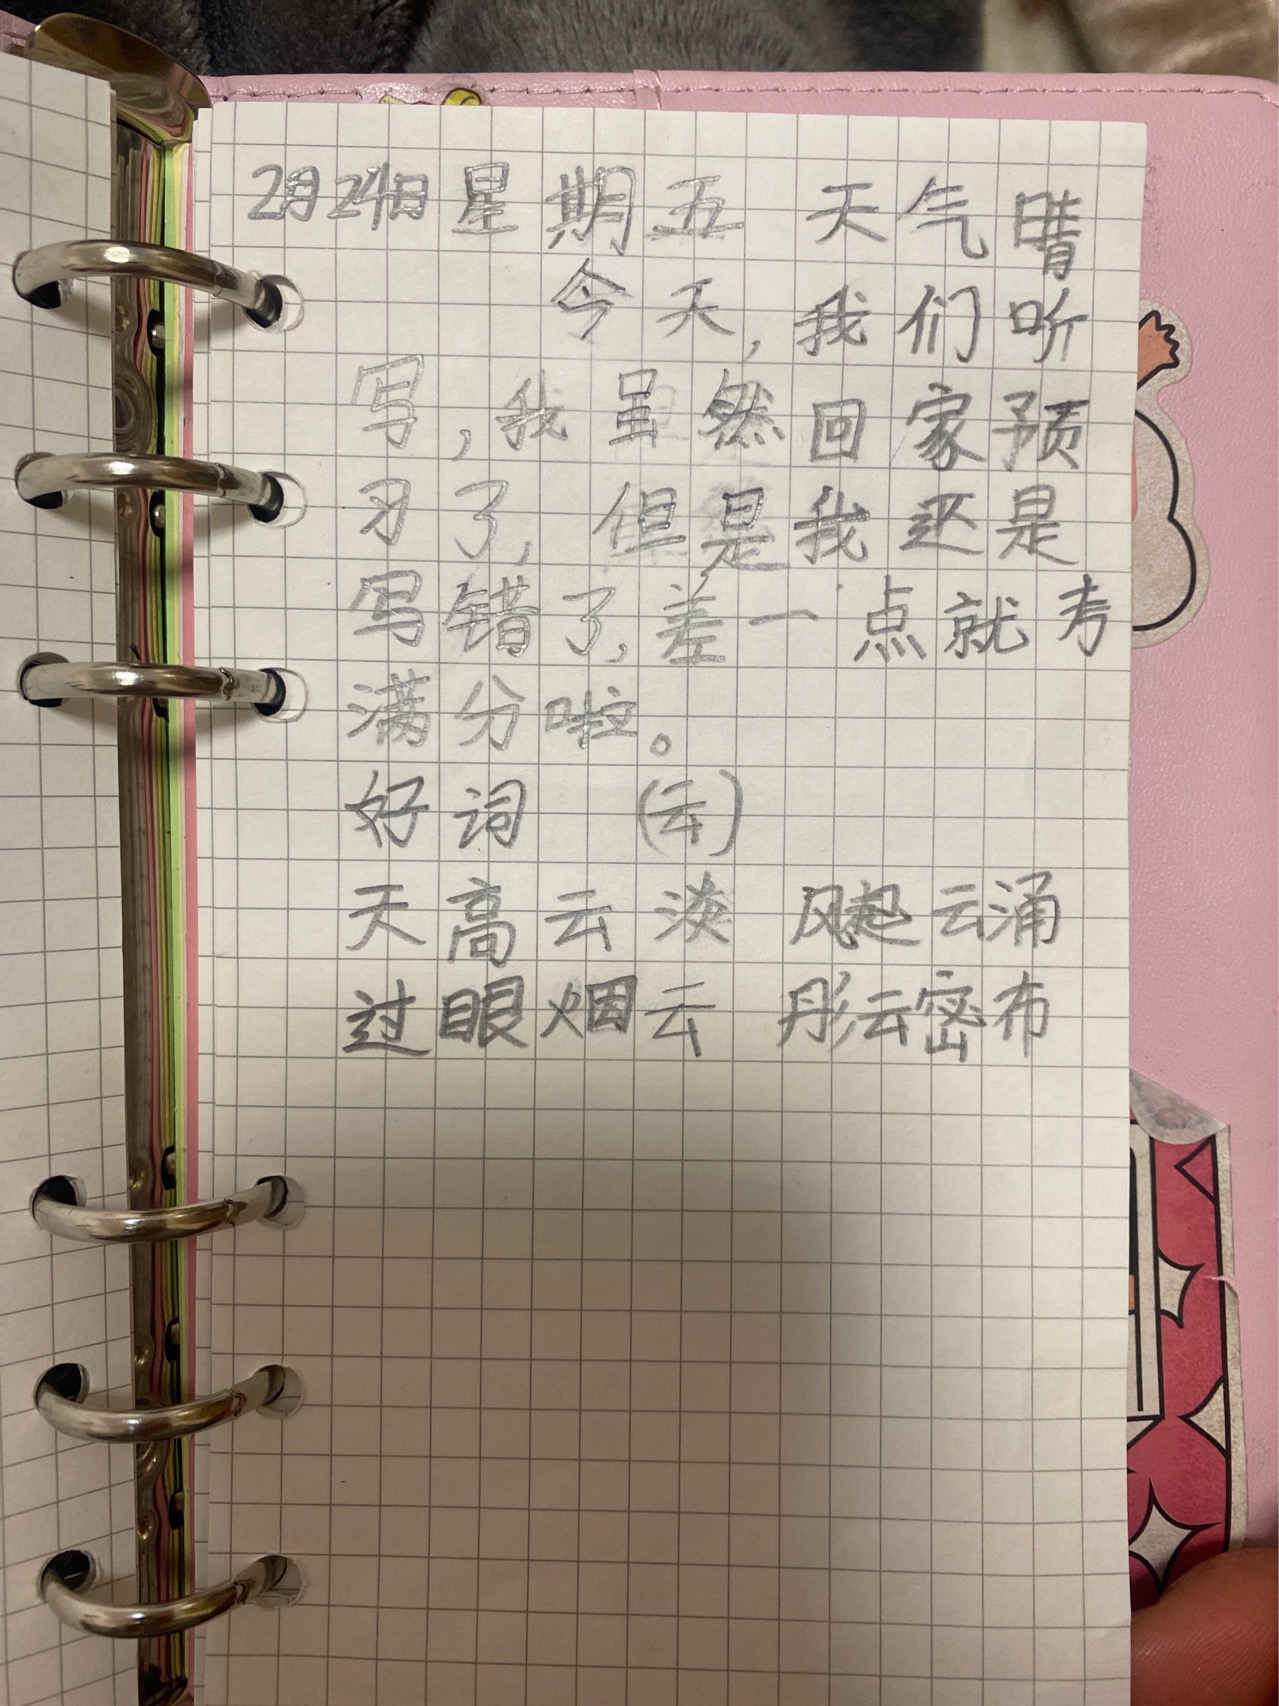 2月24日星期五 天气晴
今天,我们听
写,我虽然回家预
习了,但是我还是
写错了,差一点就考
满分啦。
好词 (云)
天高云淡 风起云涌
过眼烟云 彤云密布